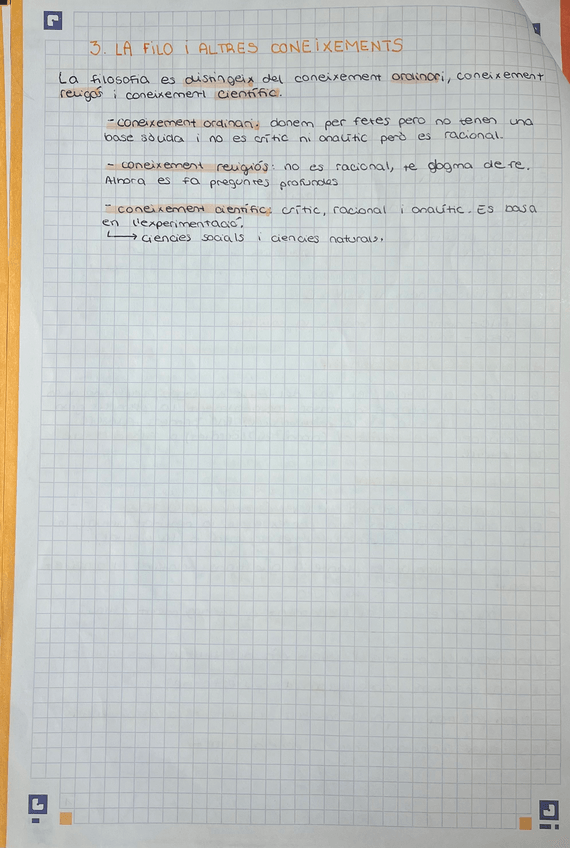 3. LA FiLO i ALTRES CONEiXEMENTS
La filosofia es distingeix del coneixement ordinari, coneixement
religós i coneixement científic.
- coneixement ordinari: donem per fetes pero no tenen una
base sòlida i no es crític ni analític però es racional.
- coneixement religiós: no es racional, te dogma de fe.
Alhora es fa preguntes profundes
- coneixement científic: crític, racional i analític. Es basa
en l'experimentació.
→ ciencies socials i ciencies naturals.